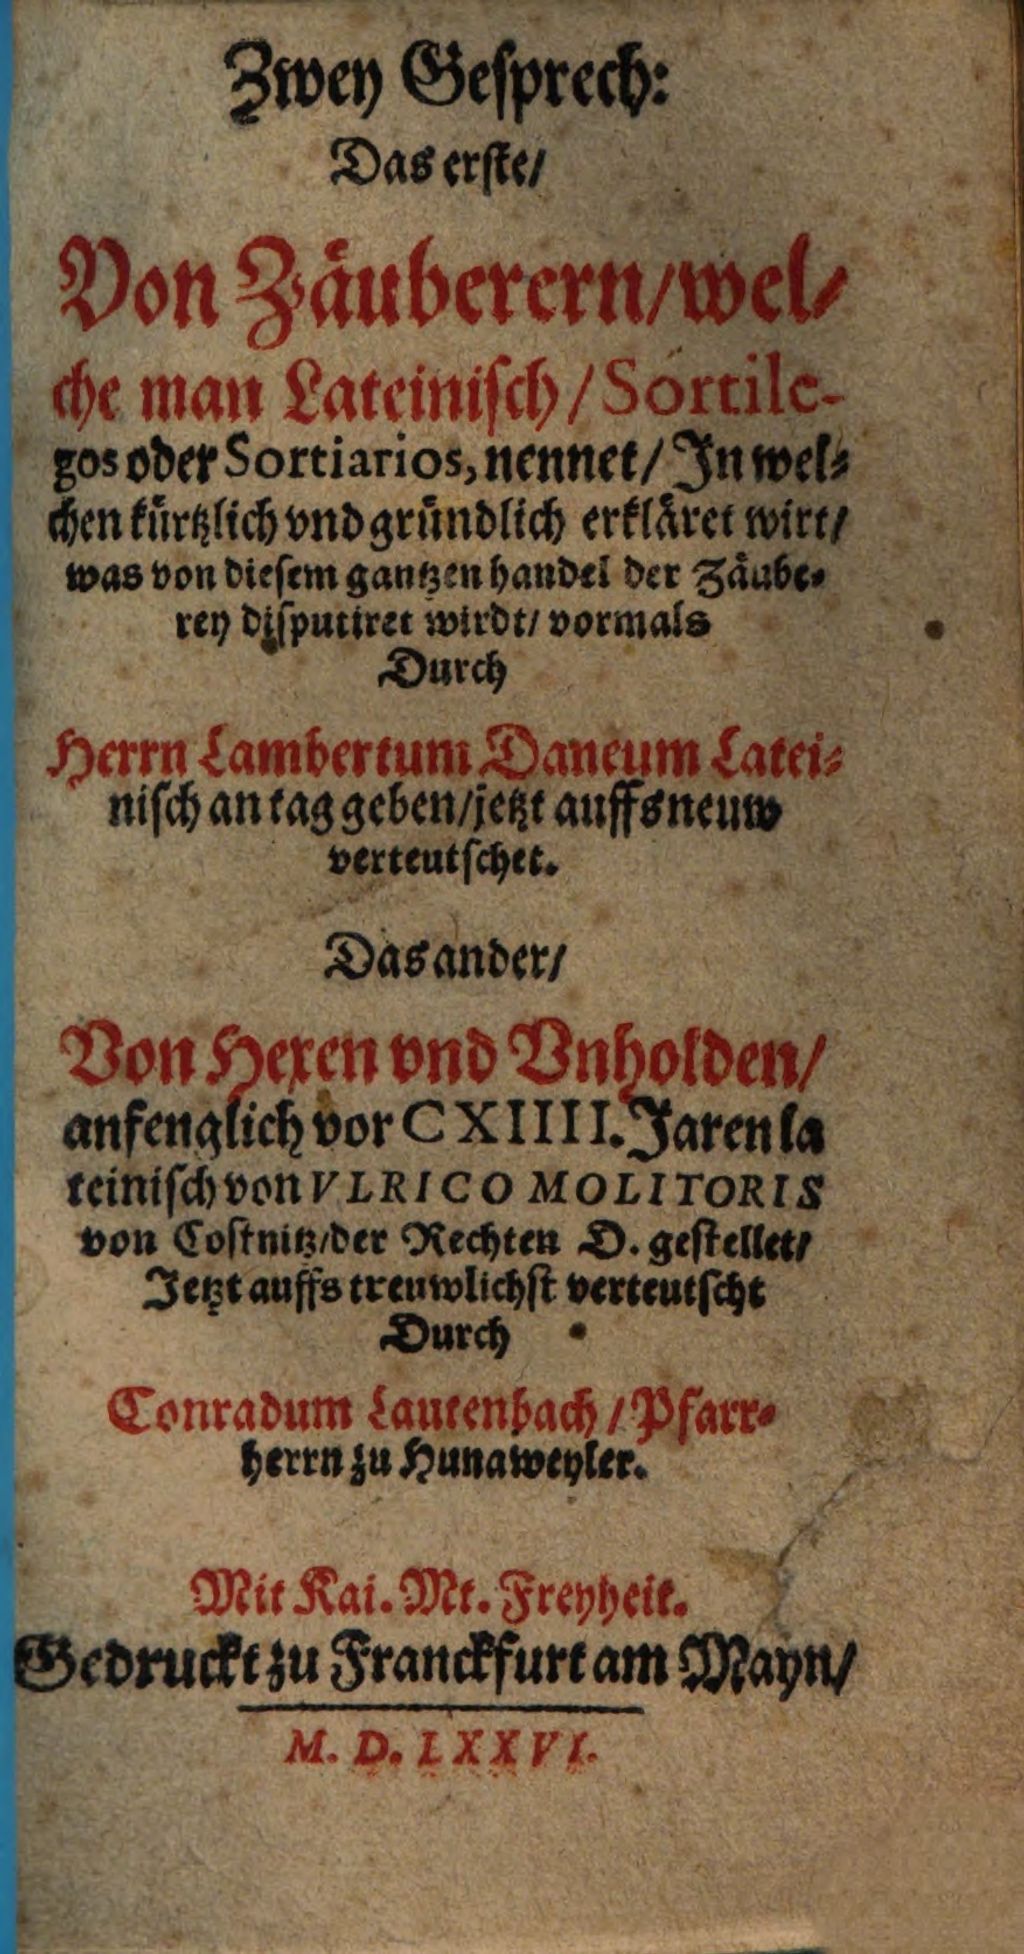 Zwey Geſprech:
Das erſte/
Von Zåuberern/wel⸗
che man Lateiniſch/Sortile-
gos oder Sortiarios, nennet/ In wel⸗
chen kürtzlich vnd gründlich erkläret wirt/
was von dieſem gantzen handel der Zåube⸗
rey diſputiret wirdt/ vormals
Durch
Herrn Lambertum Daneum Latei⸗
niſch an tag geben/jetzt auffs neuw
verteutſchet.
Das ander/
Von Hexen vnd Vnholden/
anfenglich vor CXIIII. Jaren la
teiniſch von VLRICO MOLITORIS
von Coſtnitz/der Rechten D. geſtellet/
Jetzt auffs treuwlichſt verteutſcht
Durch
Conradum Lautenbach/Pfarr⸗
herrn zu Hunaweyler.
Mit Kai. Mt. Freyheit.
Gedruckt zu Franckfurt am Mayn/
M. D. LXXVI.